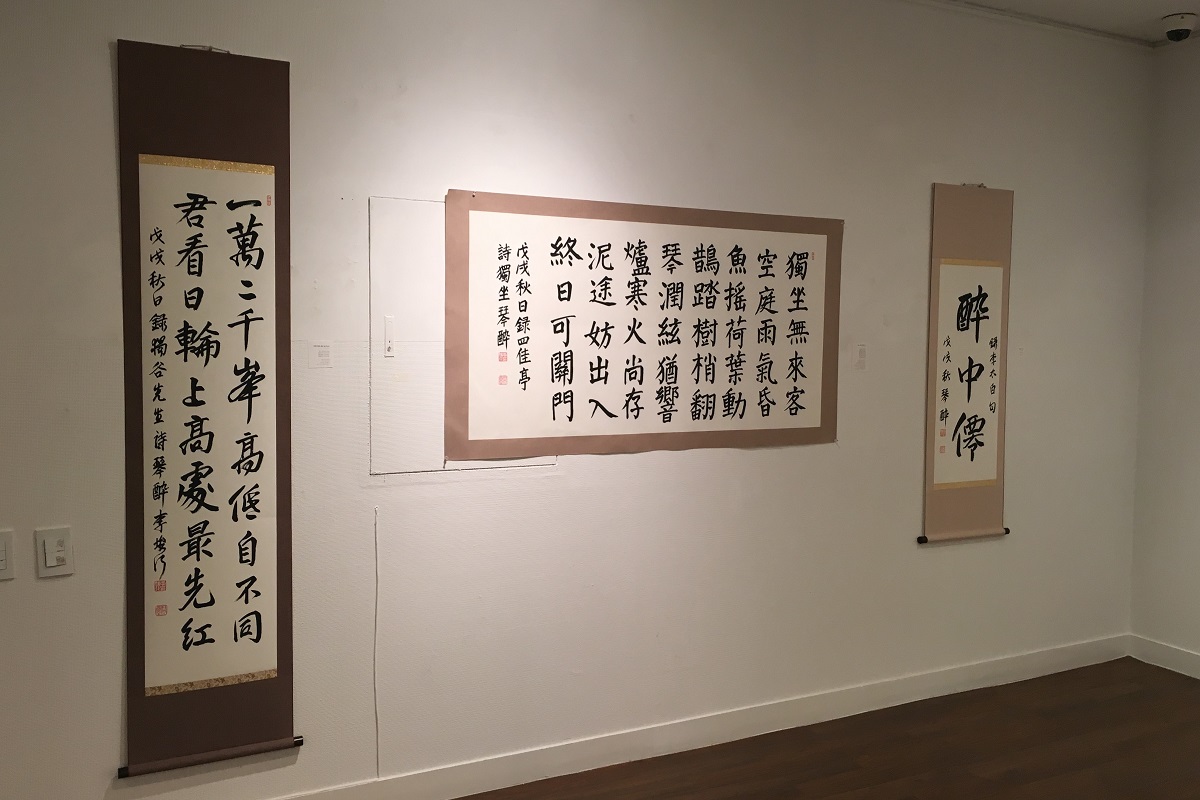 一萬二千峯高低自不同
君看日輪上高處最先紅
戊戌秋日錄獨谷先生詩琴醉李
獨坐無來客
空庭雨氣昏
魚搖荷葉動
鵲踏樹梢翻
琴潤絃猶響
爐寒火尚存
泥途妨出入
終日可關門
戊戌秋日錄四佳亭
詩獨坐琴醉
錄李太白句
醉中僊
戊戌秋琴醉